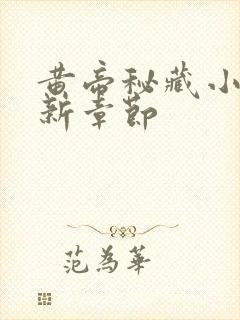 黄帝秘藏小
新章节
范为华